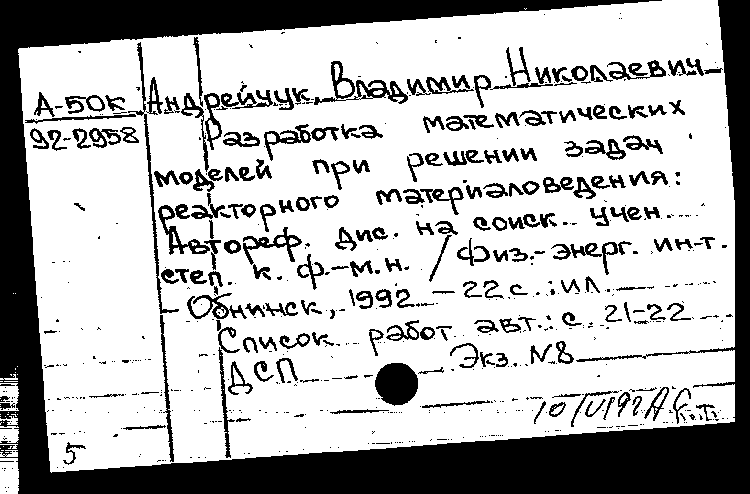 А-50к Андрейчук, Владимир Николаевич
92-2958 Разработка математических
моделей при решении задач
реакторного материаловедения:
Автореф. дис. на соиск. учен.
степ. к. ф.-м.н. / Физ.-энерг. ин-т.
- Обнинск, 1992 - 22 с. : ил.
Список работ авт.: с. 21-22
ДСП Экз. N8
5